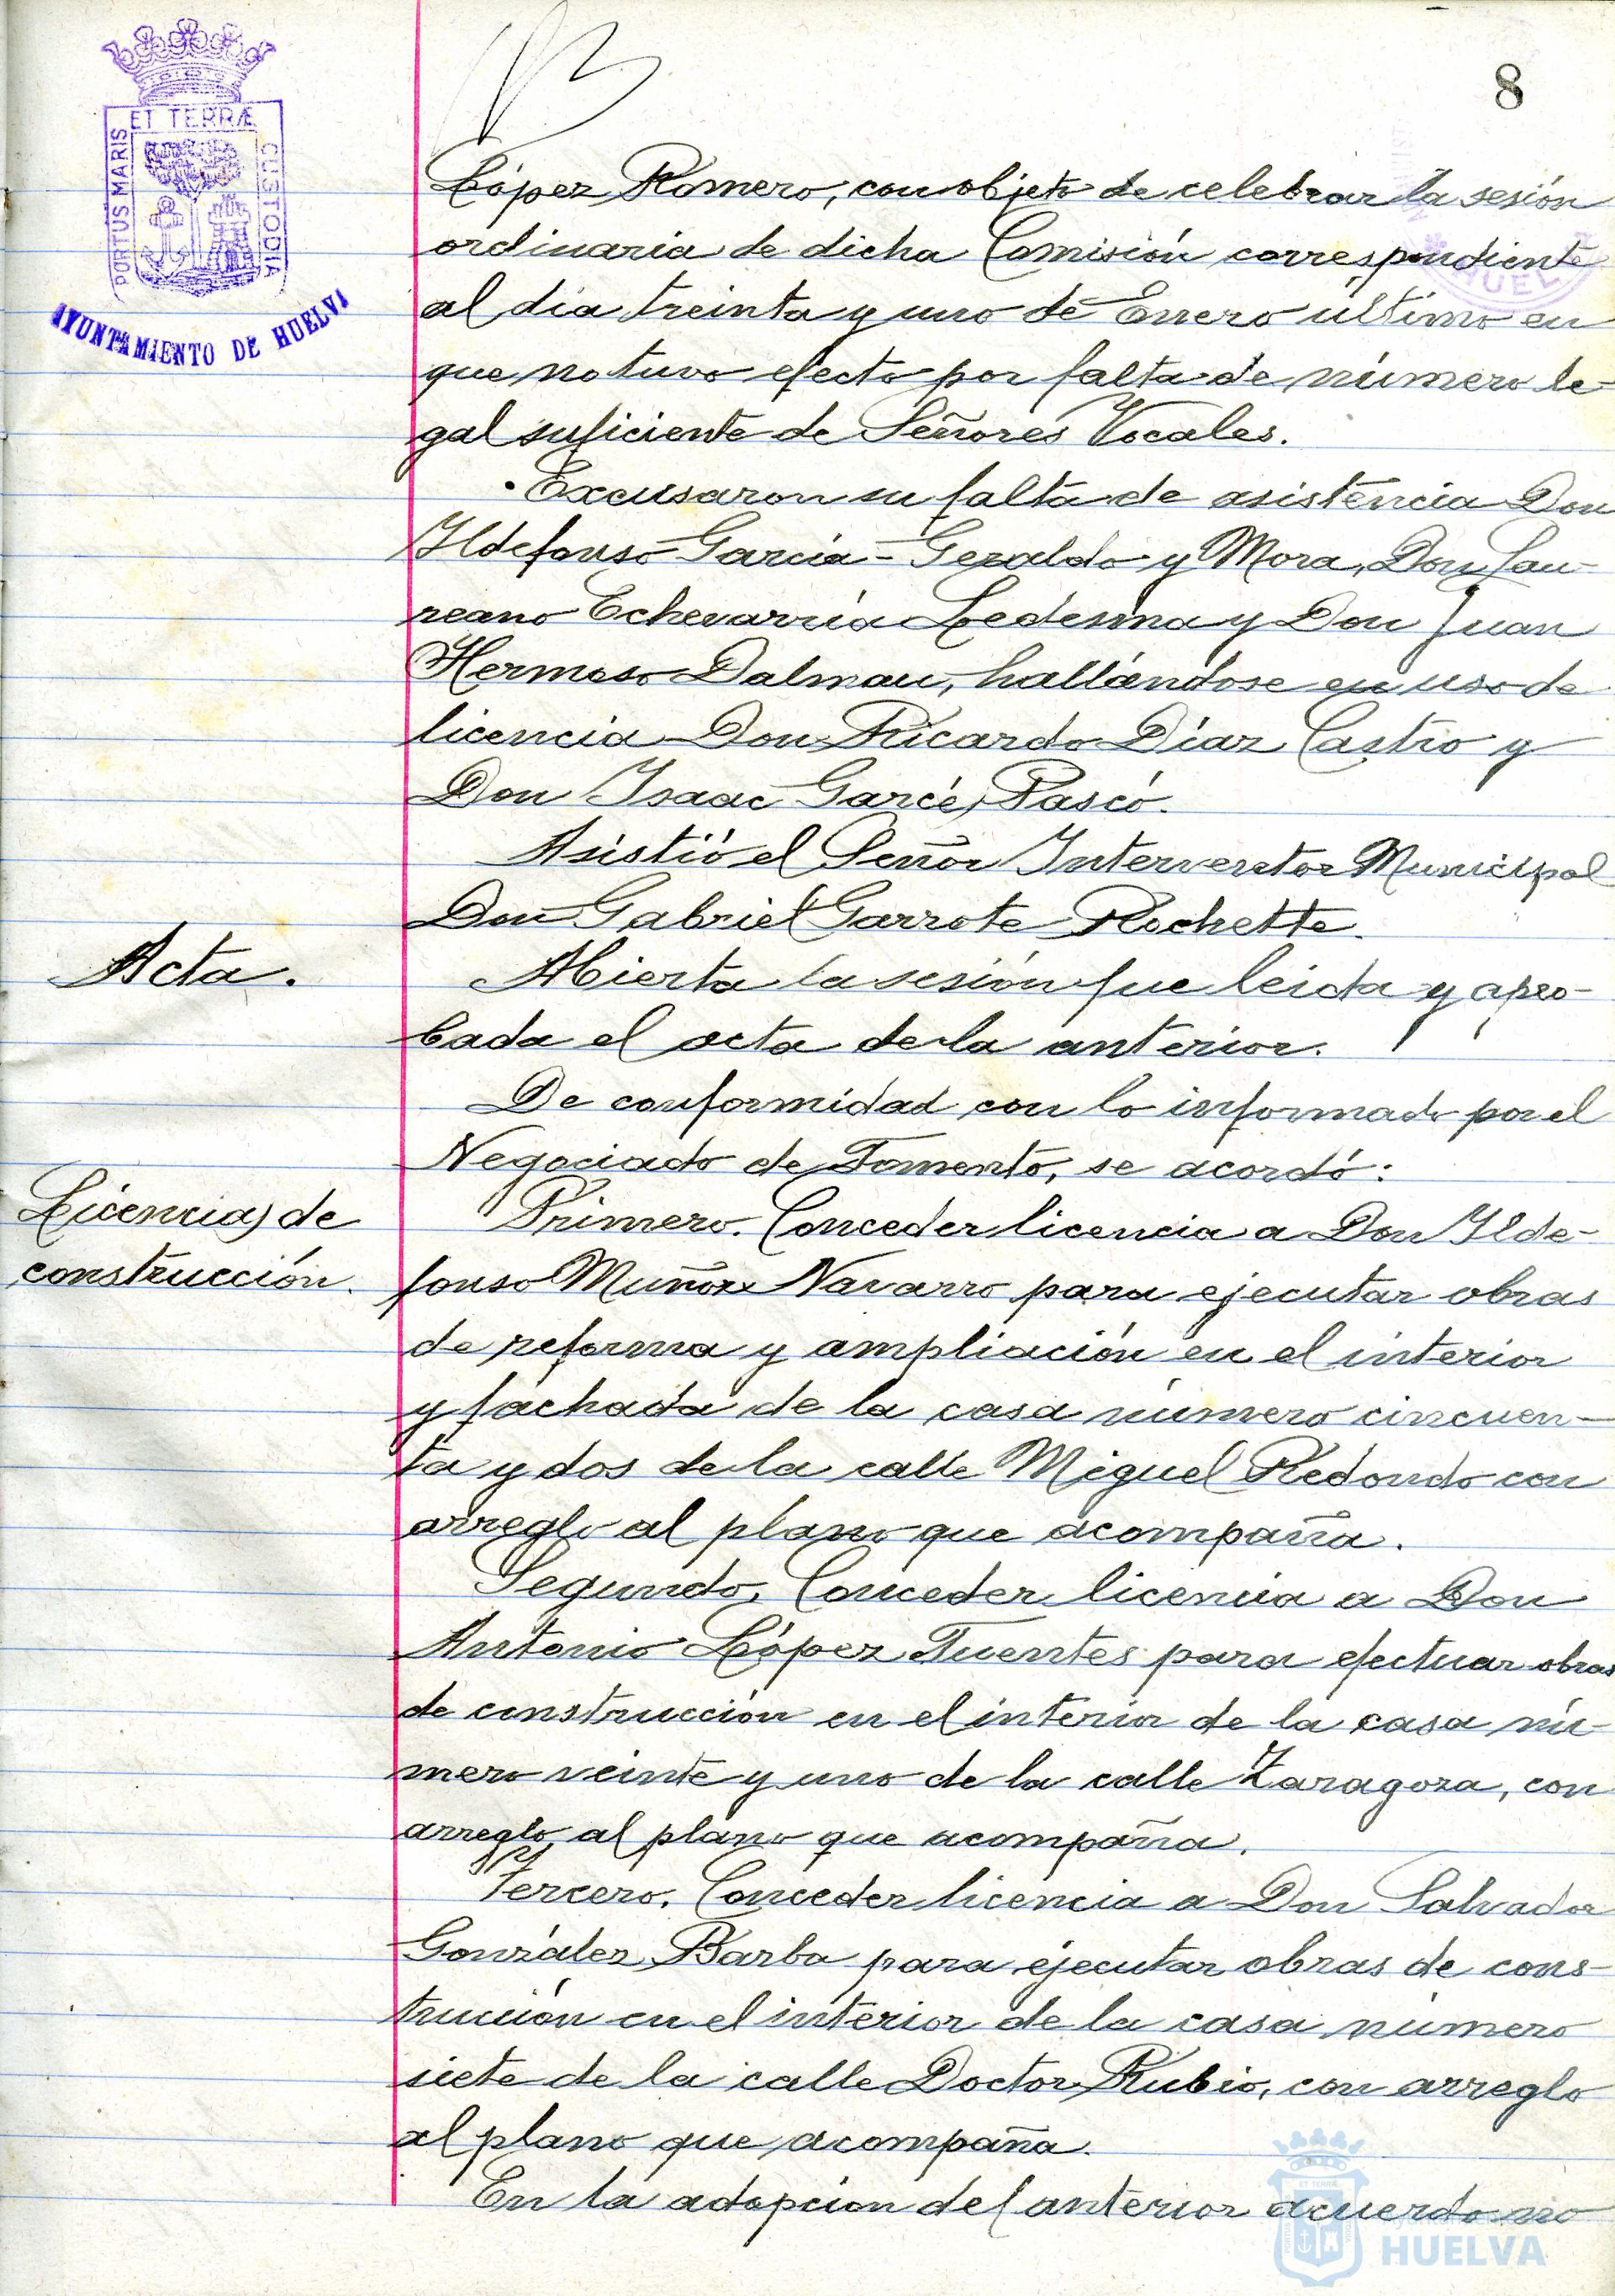 8
ET TERRÆ
PORTUS MARIS
CUSTODIA
AYUNTAMIENTO DE HUELVA
López Romero, con objeto de celebrar la sesión
ordinaria de dicha Comisión correspondiente
al día treinta y uno de Enero último en
que no tuvo efecto por falta de número le-
gal suficiente de Señores Vocales.
Excusaron su falta de asistencia Don
Ildefonso García-Geraldo y Mora, Don Lau-
reano Echevarría Ledesma y Don Juan
Hermoso Dalmau, hallándose en uso de
licencia Don Ricardo Díaz Castro y
Don Isaac Garcés Pascó.
Asistió el Señor Interventor Municipal
Don Gabriel Garrote Rochette.
Acta.
Abierta la sesión fue leida y apro-
bada el acta de la anterior.
De conformidad con lo informado por el
Negociado de Fomento, se acordó:
Licencias de
construcción.
Primero. Conceder licencia a Don Ilde-
fonso Muñoz Navarro para ejecutar obras
de reforma y ampliación en el interior
y fachada de la casa número cincuen-
ta y dos de la calle Miguel Redondo con
arreglo al plano que acompaña.
Segundo, Conceder licencia a Don
Antonio López Fuentes para efectuar obras
de construcción en el interior de la casa nú-
mero veinte y uno de la calle Zaragoza, con
arreglo al plano que acompaña.
Tercero. Conceder licencia a Don Salvador
González Barba para ejecutar obras de cons-
trucción en el interior de la casa número
siete de la calle Doctor Rubio, con arreglo
al plano que acompaña.
En la adopcion del anterior acuerdo no
HUELVA